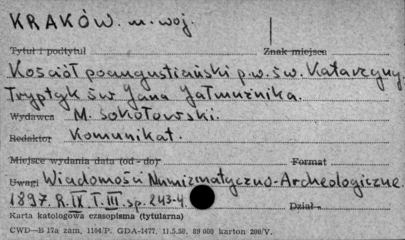 KRAKÓW. m. woj.
Tytuł i podtytuł Znak miejsca
Kościół poaugustiański p.w. św. Katarzyny.
Tryptyk św Jana Jałmużnika.
Wydawca M. Sokołowski.
Redaktor Komunikat.
Miejsce wydania data (od - do) Format
Uwagi Wiadomości Numizmatyczno-Archeologiczne
1897. R. IX. T. III. sp. 243-4. Dział
Karta katologowa czasopisma (tytularna)
CWD—B 17a zam. 1104/P. GDA-1477. 11.5.50. 89 000 karton 200/V.